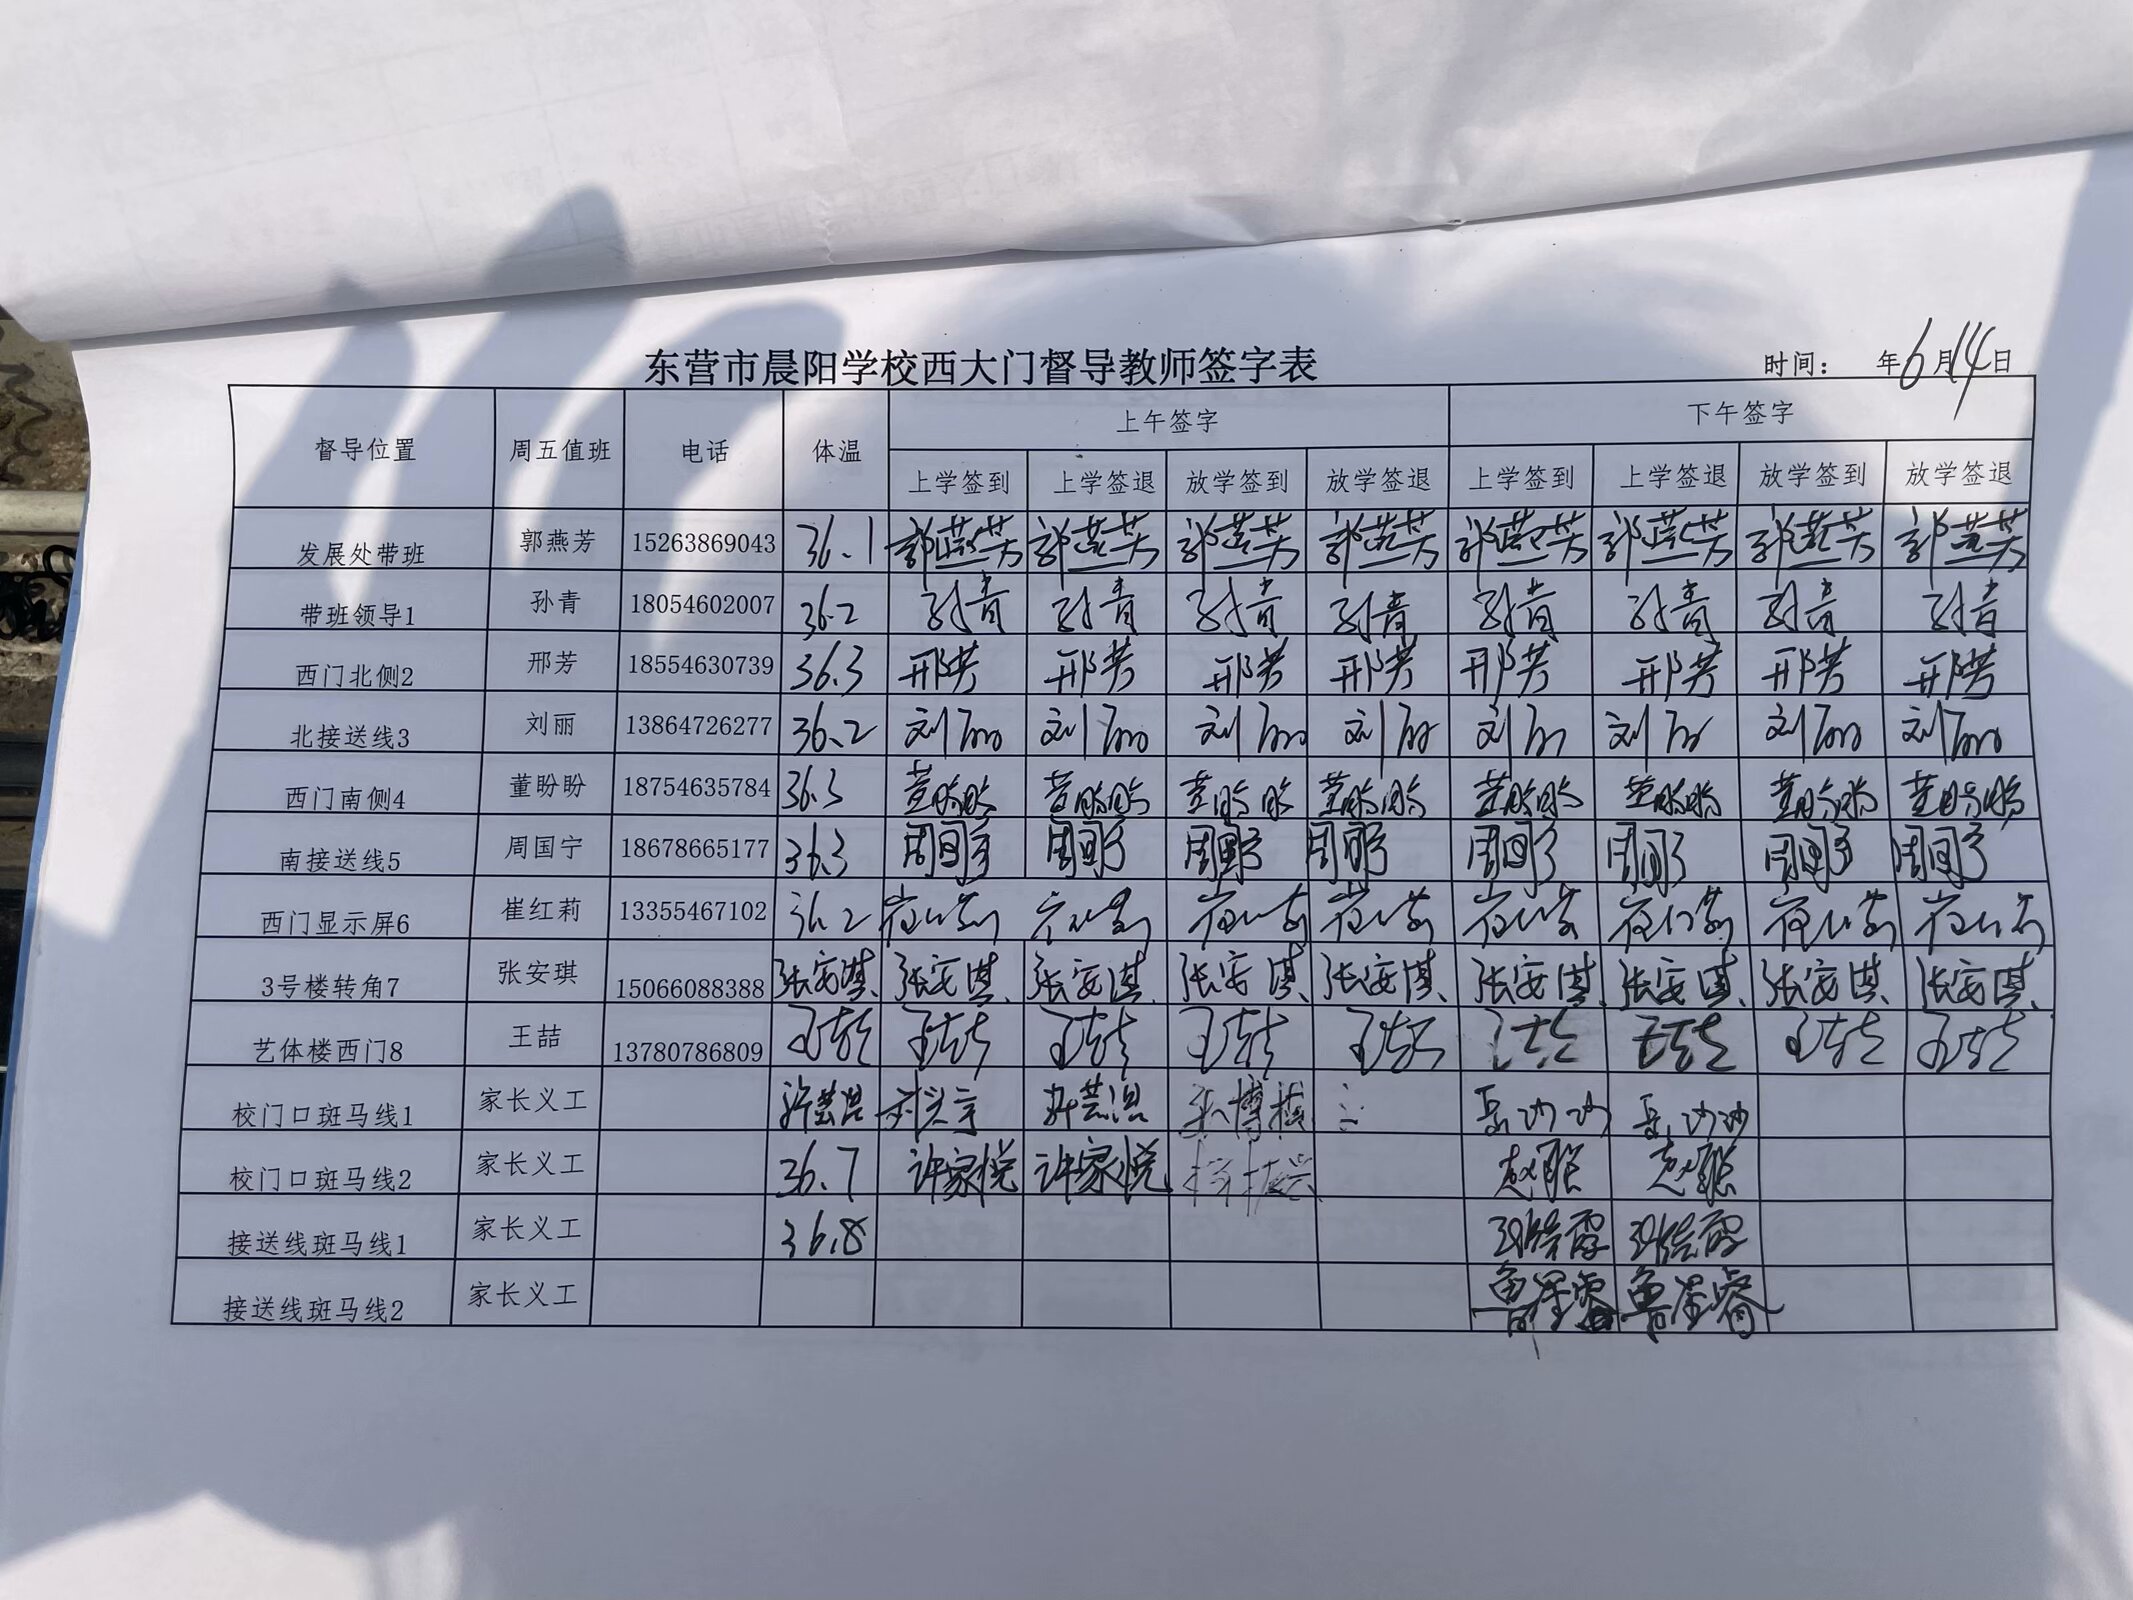 东营市晨阳学校西大门督导教师签字表
时间: 年6月14日
督导位置 周五值班 电话 体温 上午签字 下午签字
上学签到 上学签退 放学签到 放学签退 上学签到 上学签退 放学签到 放学签退
发展处带班 郭燕芳 15263869043 36.1 郭燕芳 郭燕芳 郭燕芳 郭燕芳 郭燕芳 郭燕芳 郭燕芳 郭燕芳
带班领导1 孙青 18054602007 36.2 孙青 孙青 孙青 孙青 孙青 孙青 孙青 孙青
西门北侧2 邢芳 18554630739 36.3 邢芳 邢芳 邢芳 邢芳 邢芳 邢芳 邢芳 邢芳
北接送线3 刘丽 13864726277 36.2 刘丽 刘丽 刘丽 刘丽 刘丽 刘丽 刘丽 刘丽
西门南侧4 董盼盼 18754635784 36.3 董盼盼 董盼盼 董盼盼 董盼盼 董盼盼 董盼盼 董盼盼 董盼盼
南接送线5 周国宁 18678665177 36.3 周国宁 周国宁 周国宁 周国宁 周国宁 周国宁 周国宁 周国宁
西门显示屏6 崔红莉 13355467102 36.2 崔红莉 崔红莉 崔红莉 崔红莉 崔红莉 崔红莉 崔红莉 崔红莉
3号楼转角7 张安琪 15066088388 张安琪 张安琪 张安琪 张安琪 张安琪 张安琪 张安琪 张安琪 张安琪
艺体楼西门8 王喆 13780786809 王喆 王喆 王喆 王喆 王喆 王喆 王喆 王喆 王喆
校门口斑马线1 家长义工
校门口斑马线2 家长义工 36.7 许家悦 许家悦
接送线斑马线1 家长义工 36.8
接送线斑马线2 家长义工 鲁星睿